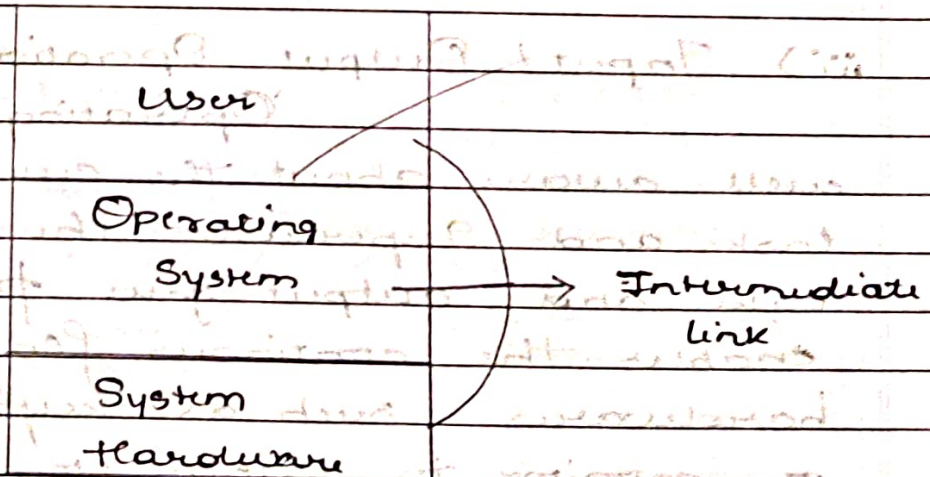 User
Operating
System → Intermediate
link
System
Hardware